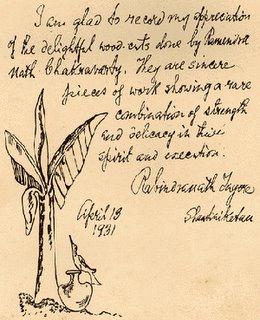 I am glad to record my appreciation
of the delightful wood-cuts done by Ramendra
Nath Chakravorty. They are sincere
pieces of work showing a rare
combination of strength
and delicacy in their
spirit and execution.
Rabindranath Tagore
April 13
1931
Shantiniketan